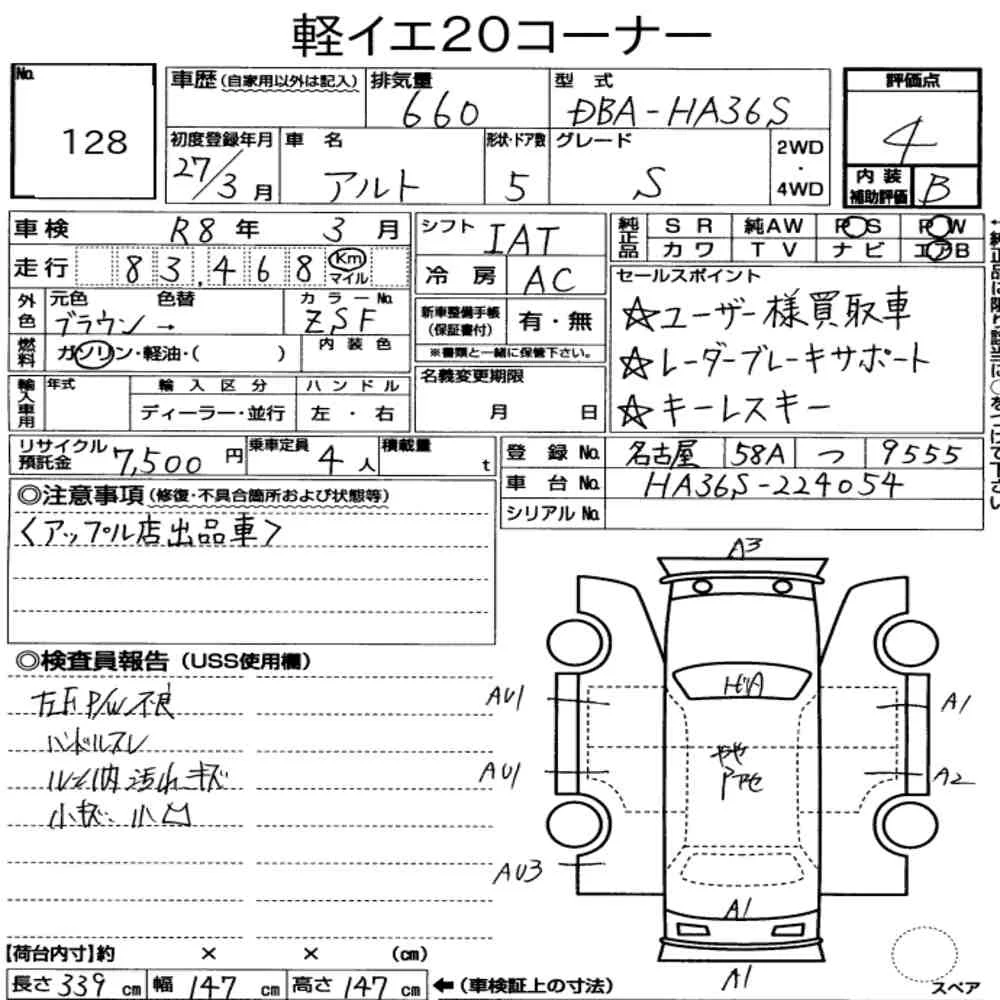 軽イエ20コーナー
No. 128
車歴 (自家用以外は記入) 排気量 660 型式 DBA-HA36S
初度登録年月 27/3月 車名 アルト 形状・ドア数 5 グレード S 2WD・4WD
評価点 4
内装補助評価 B
車検 R8年 3月
走行 83,468 Km マイル
シフト IAT
冷房 AC
純正品 SR 純AW PS PW
カワ TV ナビ エアB
外色 元色 色替 カラーNo. 内装色
ブラウン→ ZSF
燃料 ガソリン・軽油・( )
新車整備手帳(保証書付) 有・無
※書類と一緒に保管下さい。
セールスポイント
☆ユーザー様買取車
☆レーダーブレーキサポート
☆キーレスキー
輸入車用 年式 輸入区分 ハンドル
ディーラー・並行 左・右
名義変更期限
月 日
リサイクル預託金 7,500円 乗車定員 4人 積載量 t
登録No. 名古屋 58A つ 9555
車台No. HA36S-224054
シリアルNo.
◎注意事項(修復・不具合箇所および状態等)
<アップル店出品車>
◎検査員報告(USS使用欄)
左F P/W不良
ハンドルスレ
ルーム内汚れ キズ
小キズ 小凹
A3
AU1
A1
AU1
A2
AU3
A1
A1
【荷台内寸】約 × × (cm)
長さ 339 cm 幅 147 cm 高さ 147 cm ←(車検証上の寸法)
スペア